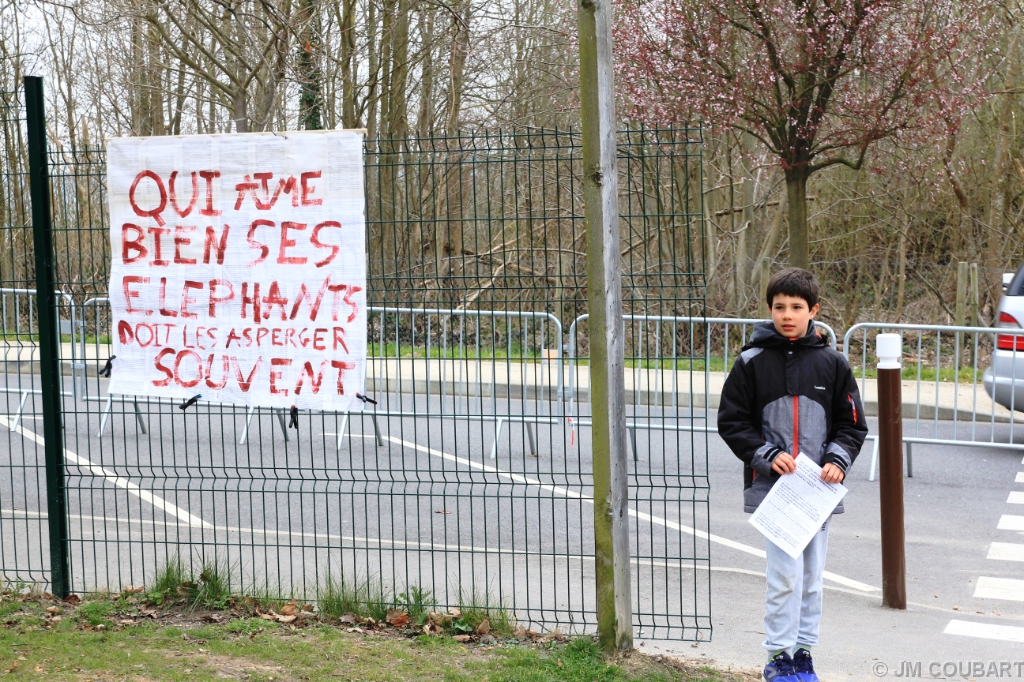 QUI AIME
BIEN SES
ELEPHANTS
DOIT LES ASPERGER
SOUVENT
© JM COUBART